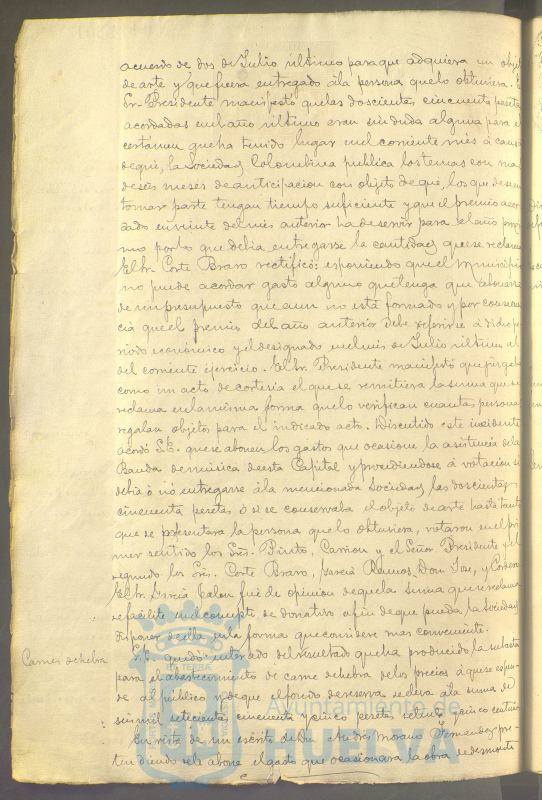 acuerdo de dos de Julio ultimo para que adquiera un objeto
de arte y que fuera entregado á la persona que lo obtuviera. El
Sr. Presidente manifestó que las doscientas cincuenta pesetas
acordadas en el año ultimo eran sin duda alguna para el
certámen que ha tenido lugar en el corriente mes á causa
de que, la Sociedad Colombina publica los temas con mas
de seis meses de anticipacion con objeto de que, los que deseen
tomar parte tengan tiempo suficiente y que el premio acor
dado en veinte del mes anterior ha de servir para el año proxi
mo por lo que debia entregarse la cantidad que se reclama
El Sr. Corte Bravo rectificó: esponiendo que el Municipio
no puede acordar gasto alguno que tenga que abonarse
de un presupuesto que aun no está formado y por consecuen
cia que el premio del año anterior debe referirse á dicho pe
riodo económico y el designado en el mes de Julio ultimo al
del corriente ejercicio. El Sr. Presidente manifestó que juzgaba
como un acto de cortesia el que se remitiera la suma que se
reclama en la misma forma que lo verifican cuantas personas
regalan objetos para el indicado acto. Discutido este incidente
acordó S.E. que se abonen los gastos que ocasione la asistencia de la
Banda de música de esta Capital y procediendose á votacion si
debia ó nó entregarse á la mencionada Sociedad las doscientas
cincuenta pesetas ó si se conservaba el objeto de arte hasta tanto
que se presentara la persona que lo obtuviera, votaron en el pri
mer sentido los Sres. Pinto, Carrion y el Señor Presidente y el
segundo los Sres. Corte Bravo, Garcia Ramos, Don Jose, y Cordero
El Sr. Garcia Calon fué de opinion de que la suma que se reclama
se facilite en el concepto de donativo á fin de que pueda la Sociedad
disponer de ella en la forma que considere mas conveniente.
Carnes de hebra
S.E. quedó enterado del resultado que ha producido la subasta
para el abastecimiento de carne de hebra de los precios á que se espen
de al público y de que el fondo de reserva se eleva á la suma de
seis mil setecientas cincuenta y cinco pesetas setenta y cinco centimos
En vista de un escrito de Don Andres Moreno Fernandez pre
tendiendo se le abone el gasto que ocasionara la obra de desmonte
Ayuntamiento de
HUELVA